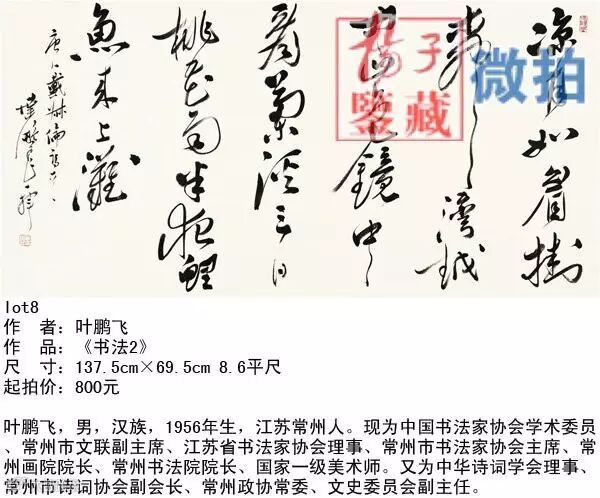 凉月如眉掛
柳灣越
中山色鏡中
看蘭溪三日
桃花雨半夜鯉
魚来上灘
揚子
鑒藏
微拍
lot8
作 者：叶鹏飞
作 品：《书法2》
尺 寸：137.5cm×69.5cm 8.6平尺
起拍价：800元
叶鹏飞，男，汉族，1956年生，江苏常州人。现为中国书法家协会学术委员
、常州市文联副主席、江苏省书法家协会理事、常州市书法家协会主席、常
州画院院长、常州书法院院长、国家一级美术师。又为中华诗词学会理事、
常州市诗词协会副会长、常州政协常委、文史委员会副主任。